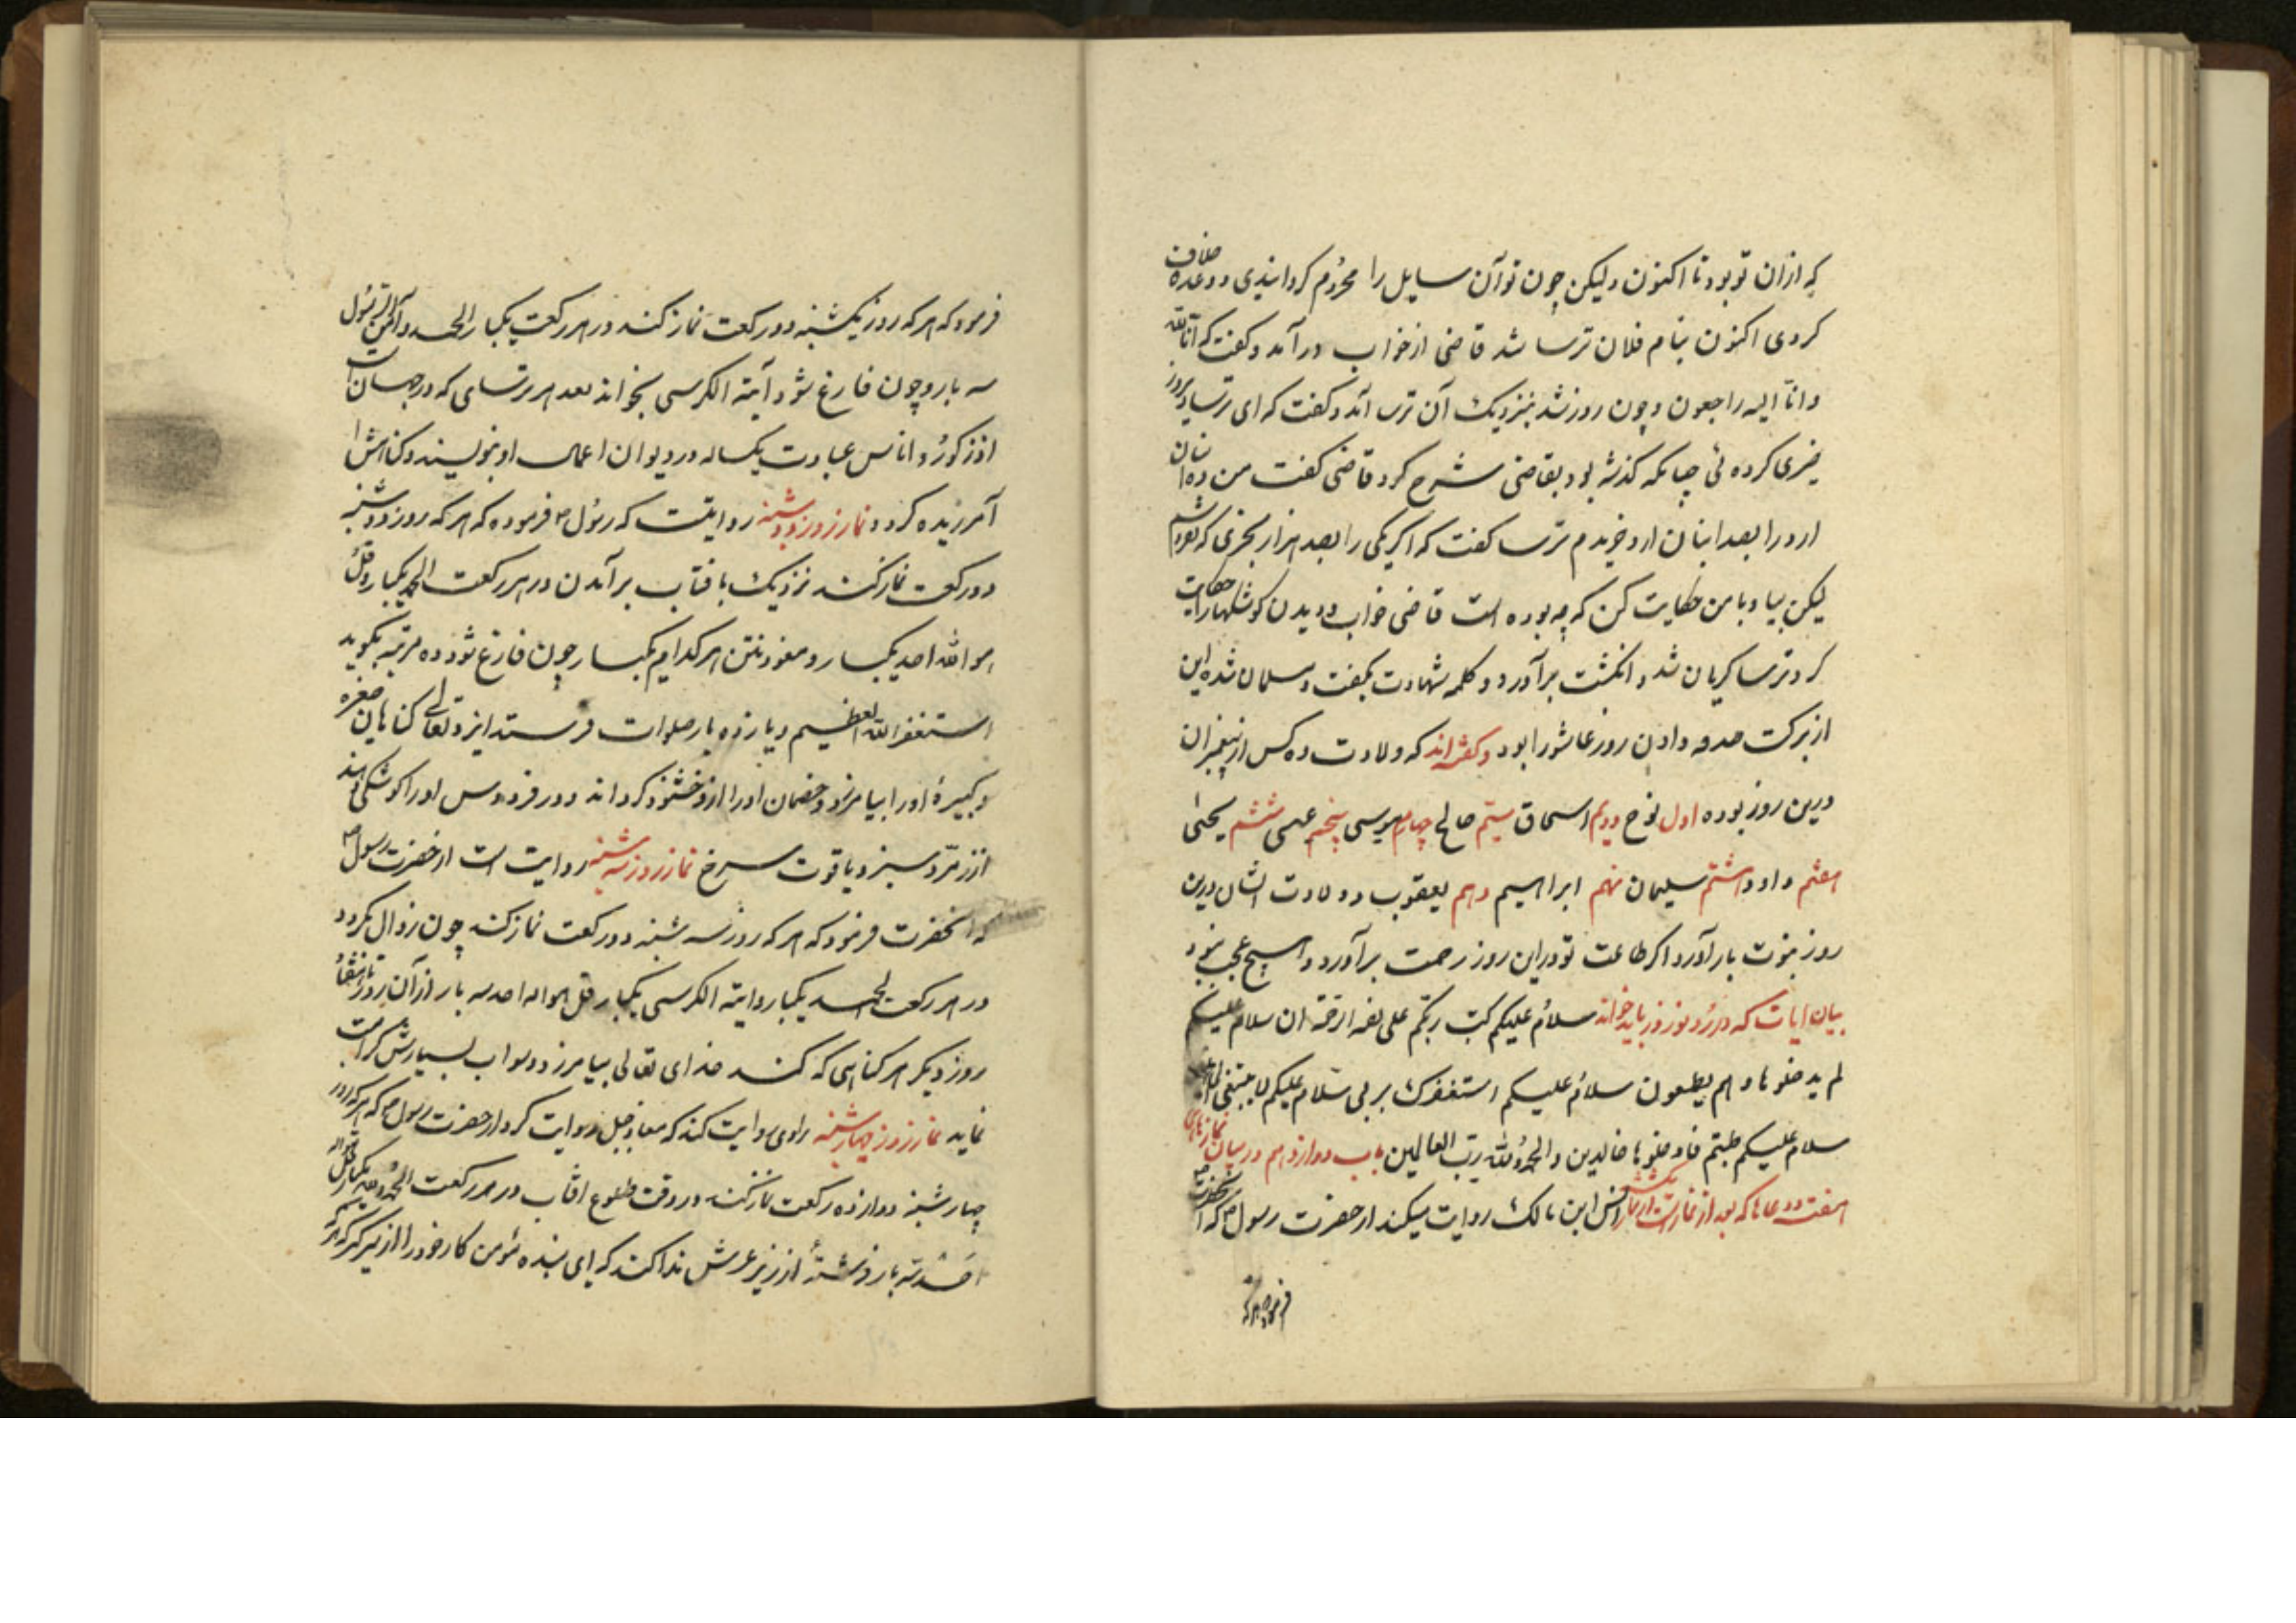 که ازان تو بود تا اکنون ولیکن چون تو آن سایل را محروم کردانیدی و وعده خلاف
کردی اکنون بنام فلان ترسا شد قاضی از خواب درآمد و کفت که انا لله
وانا الیه راجعون و چون روز شد بنزدیک آن ترسا آمد و کفت که ای ترسا دیروز
خیری کرده ئی چنانکه کذشته بود بقاضی شرح کرد قاضی کفت من ده انبان
ارد را بصد انبان ارد خریدم ترسا کفت که اکر یکی را بصد هزار بخری که نفروشم
لیکن بیا و با من حکایت کن که چه بوده است قاضی خواب و دیدن کوشکها را حکایت
کرد ترسا کریان شد و انکشت برآورد و کلمه شهادت بکفت و مسلمان شد این
از برکت صدقه دادن روز عاشورا بود و کفته‌اند که ولادت ده کس از پیغمبران
درین روز بوده اول نوح دویم اسحاق سیّم صالح چهارم موسی پنجم عیسی ششم یحیی
هفتم داود هشتم سلیمان نهم ابراهیم دهم یعقوب و ولادت ایشان درین
روز نبوت بار آورد اکر طاعت تو درین روز رحمت برآورد و هیچ عجب نبود
بیان ایات که در روز نوروز باید خواند سلام علیکم کتب ربکم علی نفسه الرحمة ان سلام علیکم
لم یدخلوها و هم یطمعون سلام علیکم استغفرک بربی سلام علیکم لا نبتغی الجاهلین
سلام علیکم طبتم فادخلوها خالدین والحمد لله رب العالمین باب دوازدهم در بیان نمازهای
هفته و دعاها که بعد از نمازست نماز یکشنبه انس ابن مالک روایت میکند از حضرت رسول ص که آنحضرت
فرمود که هرکه
فرمود که هر که روز یکشنبه دو رکعت نماز کند در هر رکعت یکبار الحمد و آمن الرسول
سه بار و چون فارغ شود آیة الکرسی بخواند بعدد هر ترسای که در جهان است
از ذکور و اناس عبادت یکساله در دیوان اعمال او بنویسند و کناهش را
آمرزیده کردد نماز روز دوشنبه روایتست که رسول ص فرموده که هر که روز دوشنبه
دو رکعت نماز کند نزدیک بافتاب برآمدن در هر رکعت الحمد یکبار و قل
هو الله احد یکبار و معوذتین هر کدام یکبار چون فارغ شود ده مرتبه بکوید
استغفر الله العظیم و یازده بار صلوات فرستد ایزد تعالی کناهان صغیره
و کبیرهٔ او را بیامرزد و خصمان او را ازو خشنود کرداند و در فردوس او را کوشکی دهند
از زمرّد سبز و یاقوت سرخ نماز روز سه شنبه روایت است از حضرت رسول ص
که آنحضرت فرمود که هر که روز سه شنبه دو رکعت نماز کند چون زوال بکردد
در هر رکعت الحمد یکبار و آیة الکرسی یکبار و قل هو الله احد سه بار از آن روز تا هفتاد
روز دیکر هر کناهی که کند خدای تعالی بیامرزد و ثواب بسیارش کرامت
نماید نماز روز چهارشنبه راوی روایت کند که معاذ جبل روایت کرد از حضرت رسول ص که هر که در روز
چهارشنبه دوازده رکعت نماز کند در وقت طلوع افتاب در هر رکعت الحمد لله یکبار و قل هو الله
احد سه بار فرشتهٔ از زیر عرش ندا کند که ای بنده مؤمن کار خود را از سر کیر که